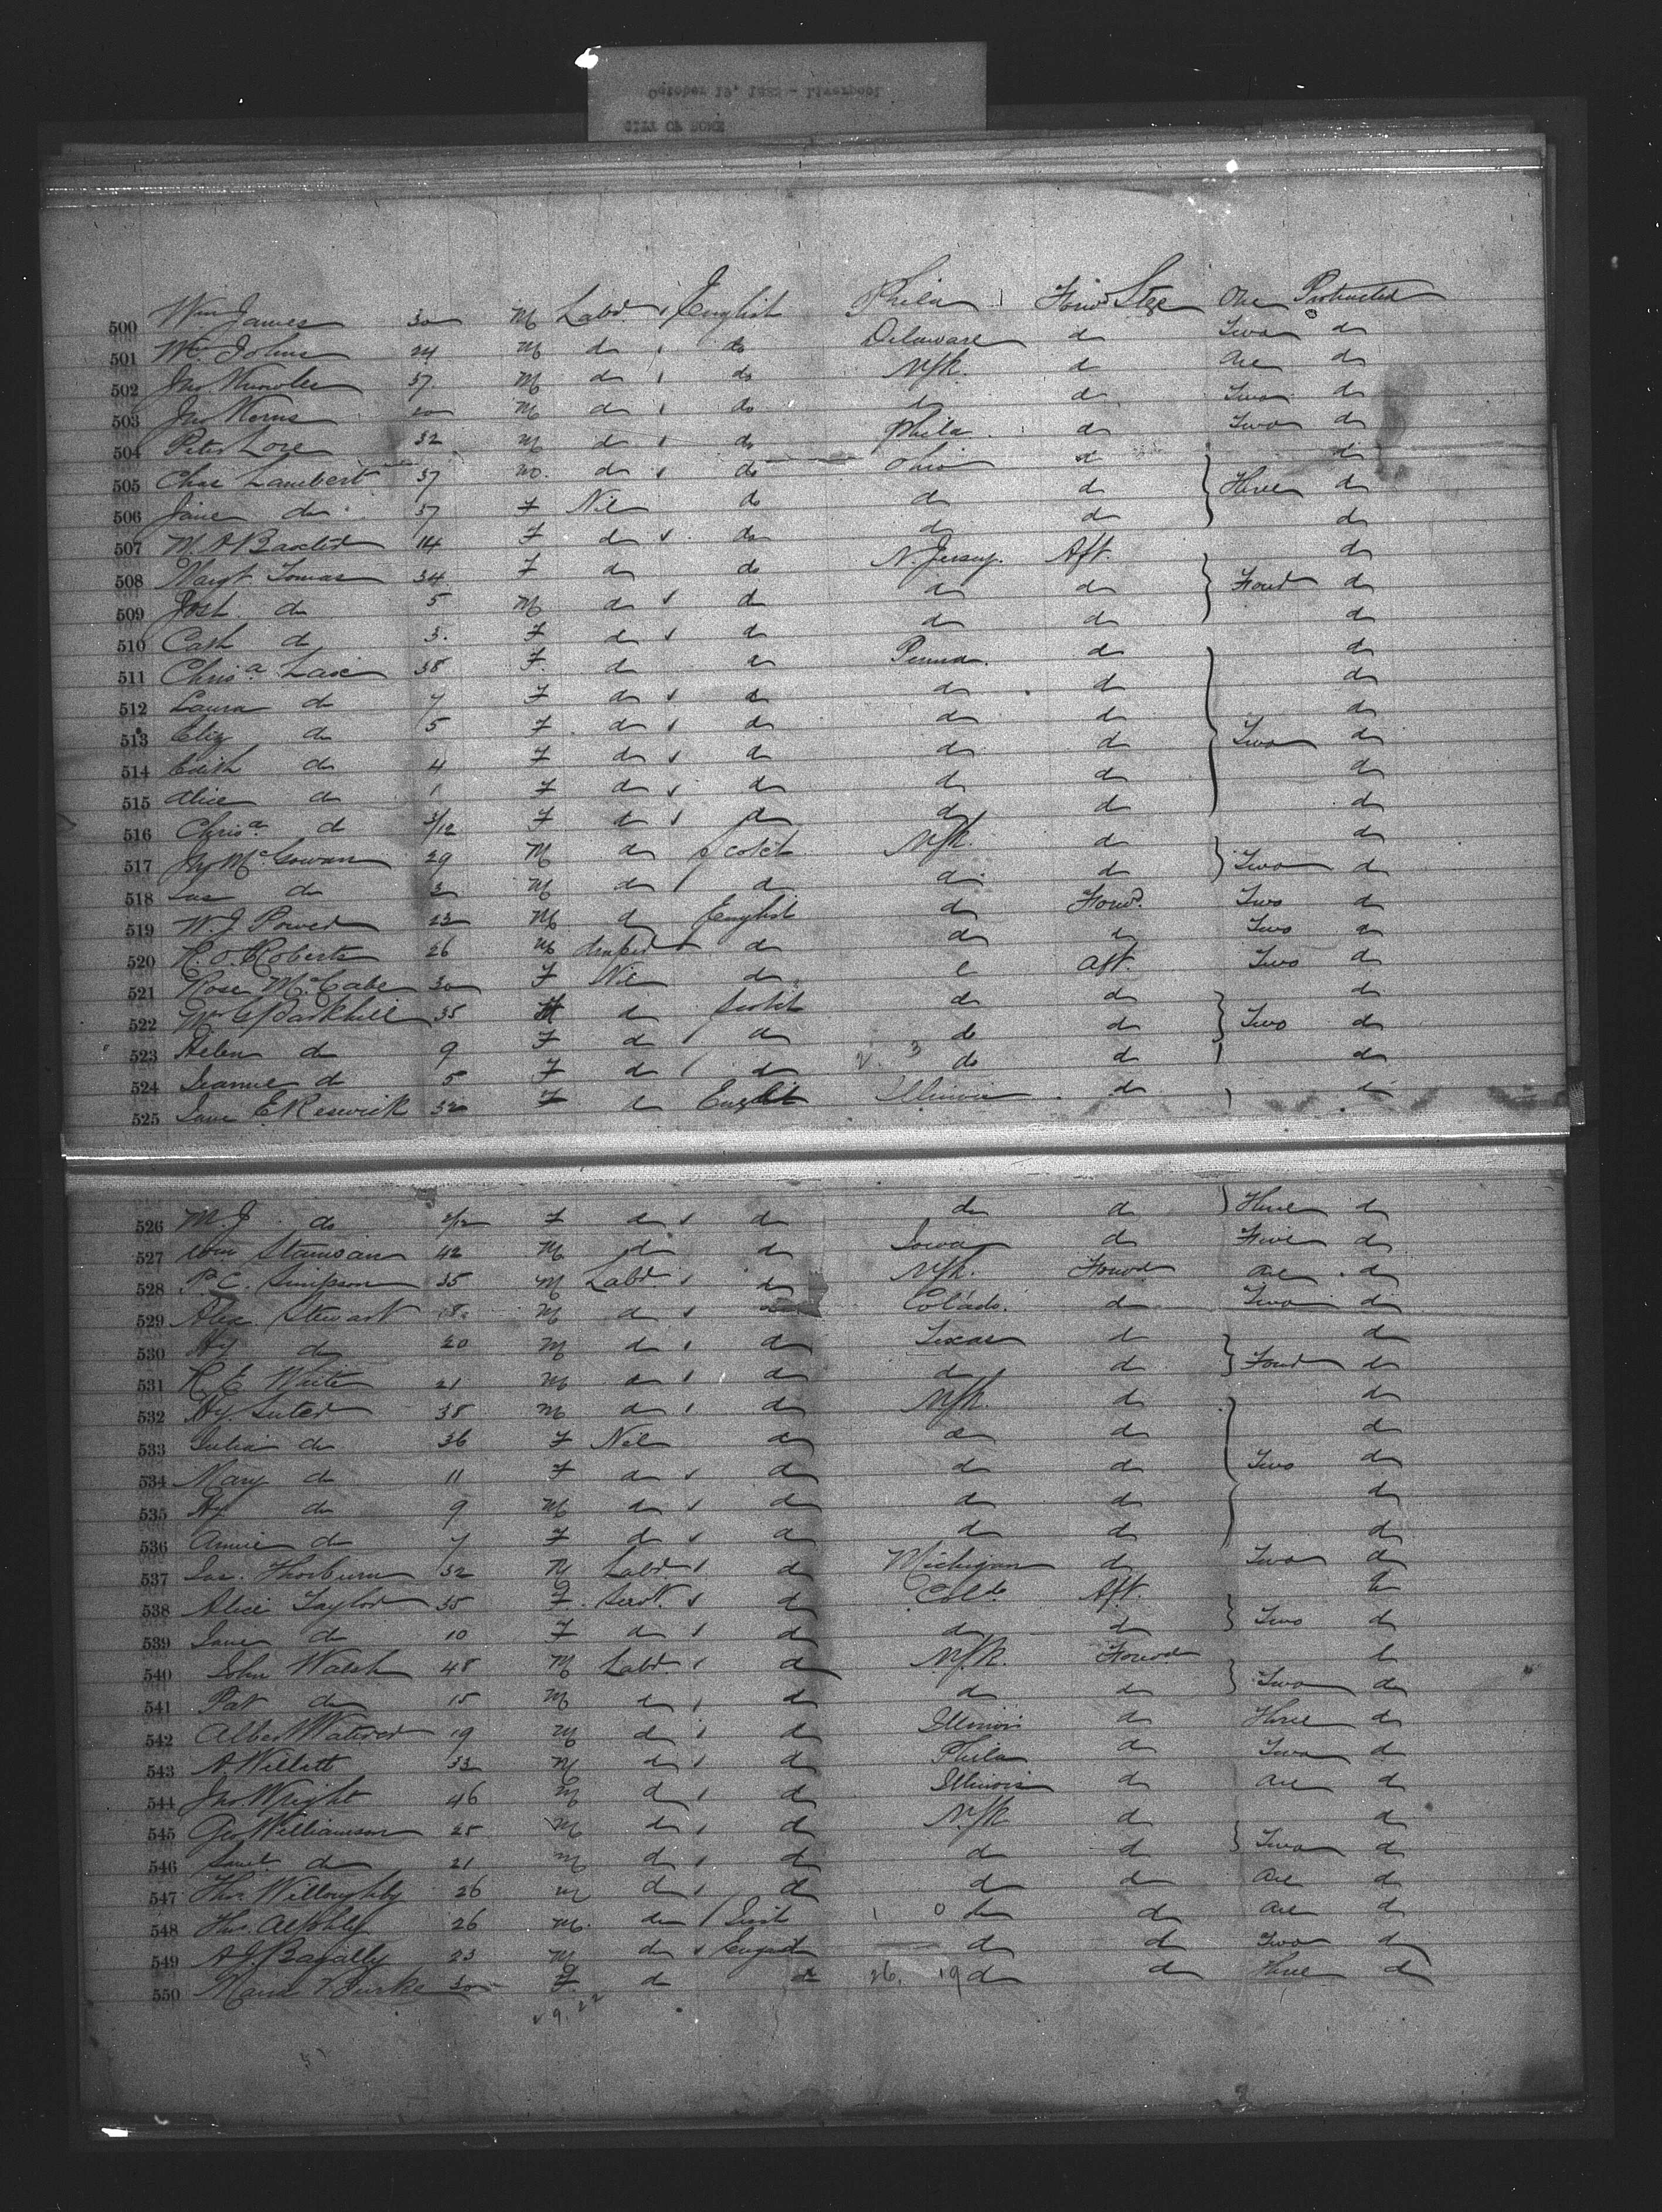 October 19, 1883 - Liverpool
CITY OF ROME
500 Wm James 30 M Labr English Phila Forwd Stge One Protracted
501 Wm Johns 24 M do do Delaware do Two do
502 Jno Knowles 37 M do do N/k. do One do
503 Jno Kerns 20 M do do do do Two do
504 Peter Love 32 M do do Phila do Two do
505 Chas Lambert 37 M do do Ohio do do
506 Jane do 37 F Nil do do do Three do
507 M. A. Baxter 14 F do do do do do
508 Margt Tomas 34 F do do N. Jersey. Aft. do
509 Josh. do 5 M do do do do Four do
510 Cath do 3. F do do do do do
511 Chrisa 38 F. do do Penna. do do
512 Laura do 7 F do do do do do
513 Eliz do 5 F do do do do do
514 Edith do 4 F do do do do Two do
515 Alice do 1 F do do do do do
516 Chrisa do /12 F do do do do do
517 Jno McGowan 29 M do Scotch N/k. do do
518 Jas do M do do do do Two do
519 W. J. Power 23 M. do English do Forwd. Two do
520 R. O. Roberts 26 M draper do do do Two do
521 Rose McCabe 30 F Nil do do Aft. Two do
522 Parkhill 35 do Scotch do do do
523 Helen do 9 F do do do do Two do
524 Jeannie do 5 F do do do do do
525 Jane E Keswick 32 F do English Illinois do do
526 M. J. do /12 F do do do do Three do
527 Wm 42 M do do Iowa do Five do
528 P. C. Simpson 35 M Labr do N/k. Forwd One do
529 Alex. Stewart 18 M do Colado. do Two do
530 Hy do 20 M do do Texas do do
531 R. E. White 21 M do do do do Four do
532 Hy. Suter 38 M do do N/k. do do
533 Julia do 36 F Nil do do do do
534 Mary do 11 F do do do do Two do
535 Hy do 9 M do do do do do
536 Annie do 7 F do do do do do
537 Jas. Thorburn 32 M Labr do Michigan do Two do
538 Alice Taylor 35 F. Servt. do Coldo Aft. do
539 Jane do 10 F do do do do Two do
540 John Walsh 48 M Labr do N/k. Forwd do
541 Pat do 15 M do do do do Two do
542 Albert 19 M do do Illinois do Three do
543 A. Willett 33 M do do Phila do Two do
544 Jno. Wright 46 M do do Illinois do One do
545 Geo Williamson 25 M do do N/k do do
546 Saml. do 21 M do do do do Two do
547 Thos. Willoughby 26 M do do do do One do
548 Thos. 26 M. do Irish do do One do
549 A. J. Bagally 23 M do English do do Two do
550 Maria Burke 30 F. do do 26. 19 do do Three do